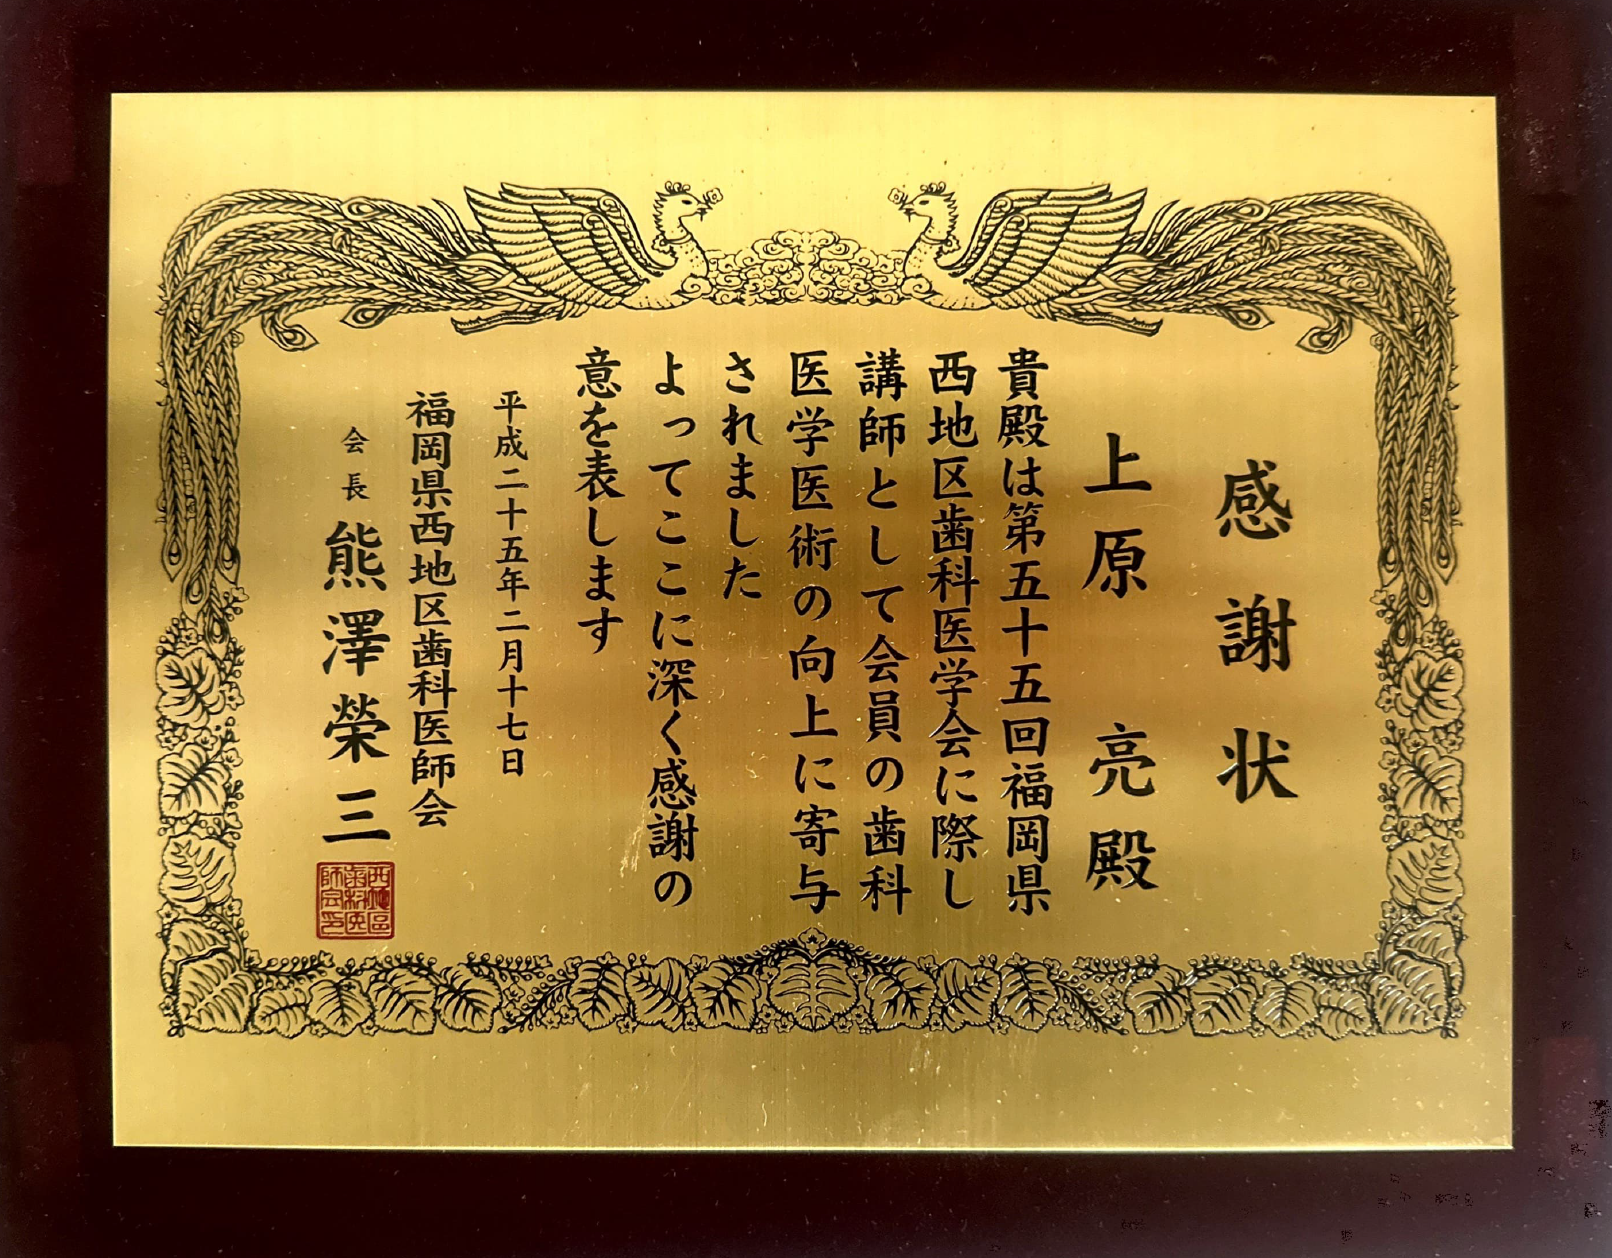 感謝状
上原 亮 殿
貴殿は第五十五回福岡県
西地区歯科医学会に際し
講師として会員の歯科
医学医術の向上に寄与
されました
よってここに深く感謝の
意を表します
平成二十五年二月十七日
福岡県西地区歯科医師会
会長 熊澤榮三
西地區
歯科医
師会印